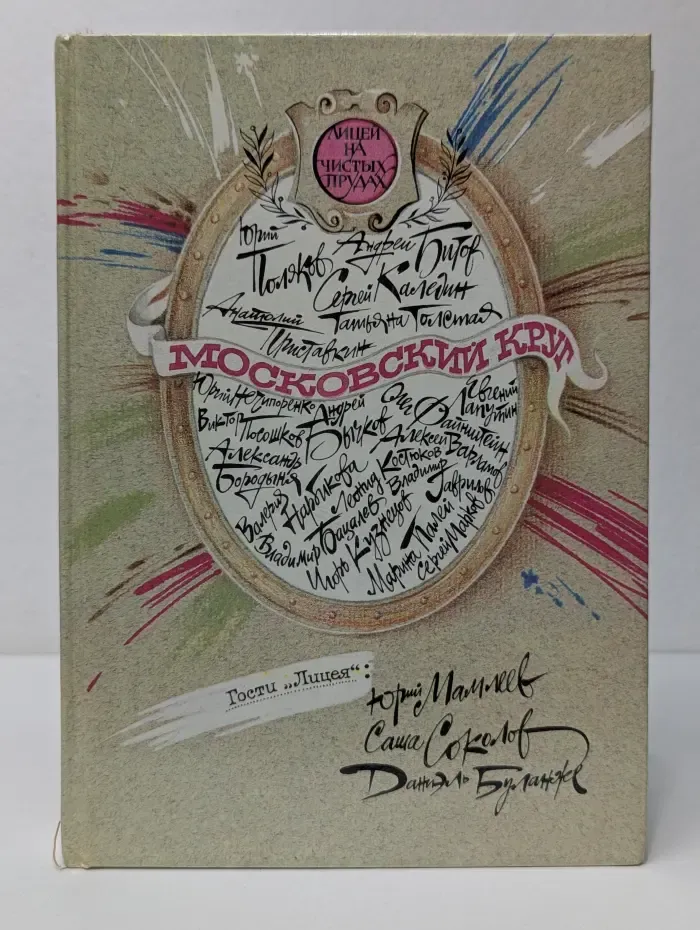 ЛИЦЕЙ
НА
ЧИСТЫХ
ПРУДАХ
Юрий Поляков
Андрей Битов
Сергей Каледин
Анатолий Приставкин
Татьяна Толстая
МОСКОВСКИЙ КРУГ
Юрий Нечипоренко
Виктор Посошков
Александр Бородыня
Андрей Бычков
Олег Файнштейн
Евгений Лапутин
Алексей Варламов
Валерия Нарбикова
Леонид Костюков
Владимир Гаврилов
Владимир Бакалев
Игорь Кузнецов
Марина Палей
Сергей Марков
Гости „Лицея“:
Юрий Мамлеев
Саша Соколов
Даниэль Буланже